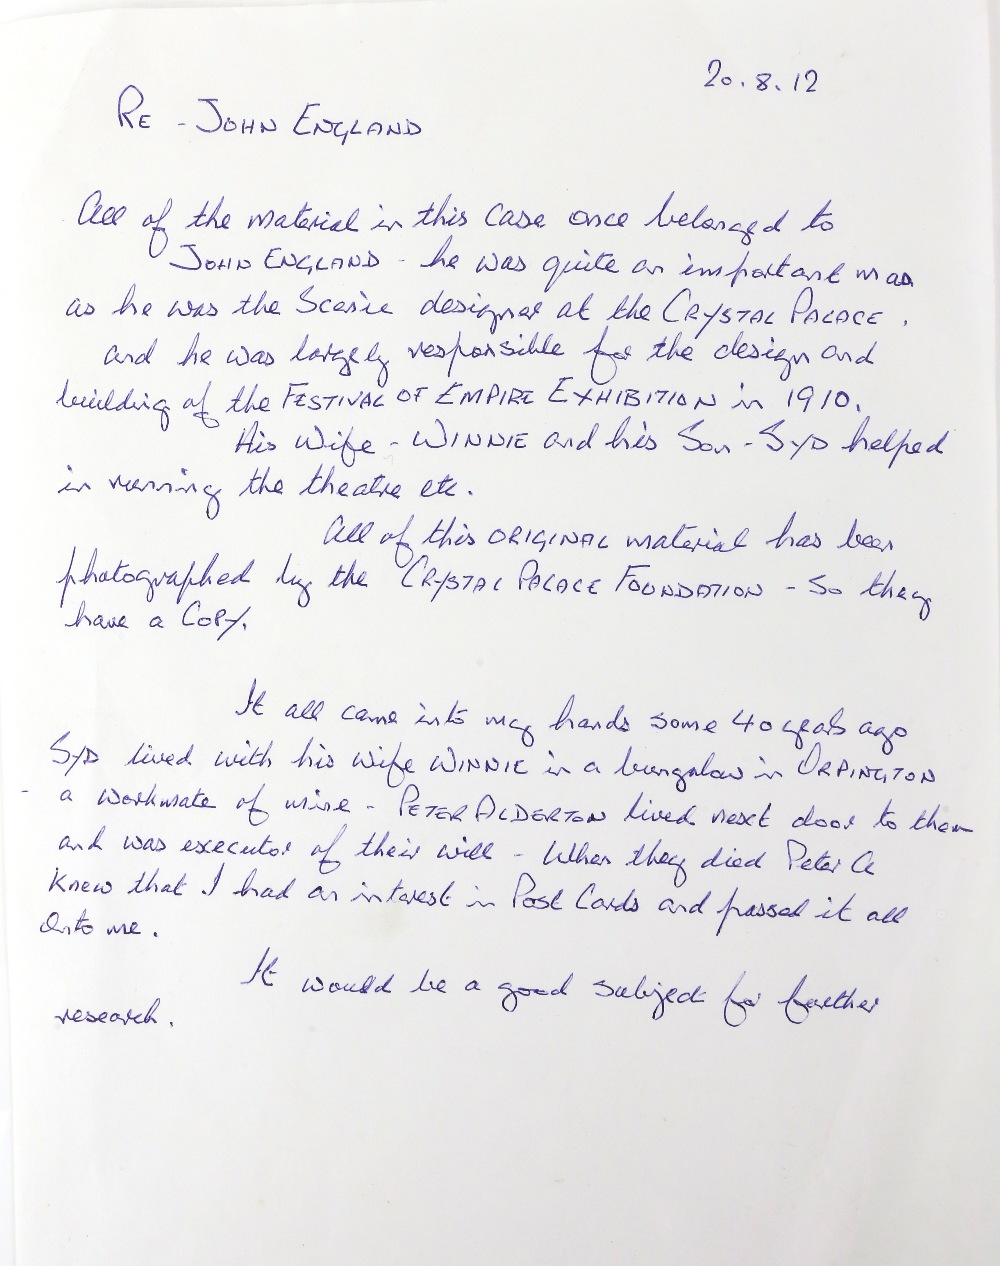 20.8.12
RE - JOHN ENGLAND
All of the material in this case once belonged to
JOHN ENGLAND - he was quite an important man
as he was the Scenic designer at the CRYSTAL PALACE.
and he was largely responsible for the design and
building of the FESTIVAL OF EMPIRE EXHIBITION in 1910.
His Wife - WINNIE and his Son - SYD helped
in running the theatre etc.
All of this ORIGINAL material has been
photographed by the CRYSTAL PALACE FOUNDATION - So they
have a COPY.
It all came into my hands some 40 years ago
SYD lived with his wife WINNIE in a bungalow in ORPINGTON
- a workmate of mine - PETER ALDERTON lived next door to them
and was executor of their will - When they died Peter A
knew that I had an interest in Post Cards and passed it all
Onto me.
It would be a good subject for further
research.